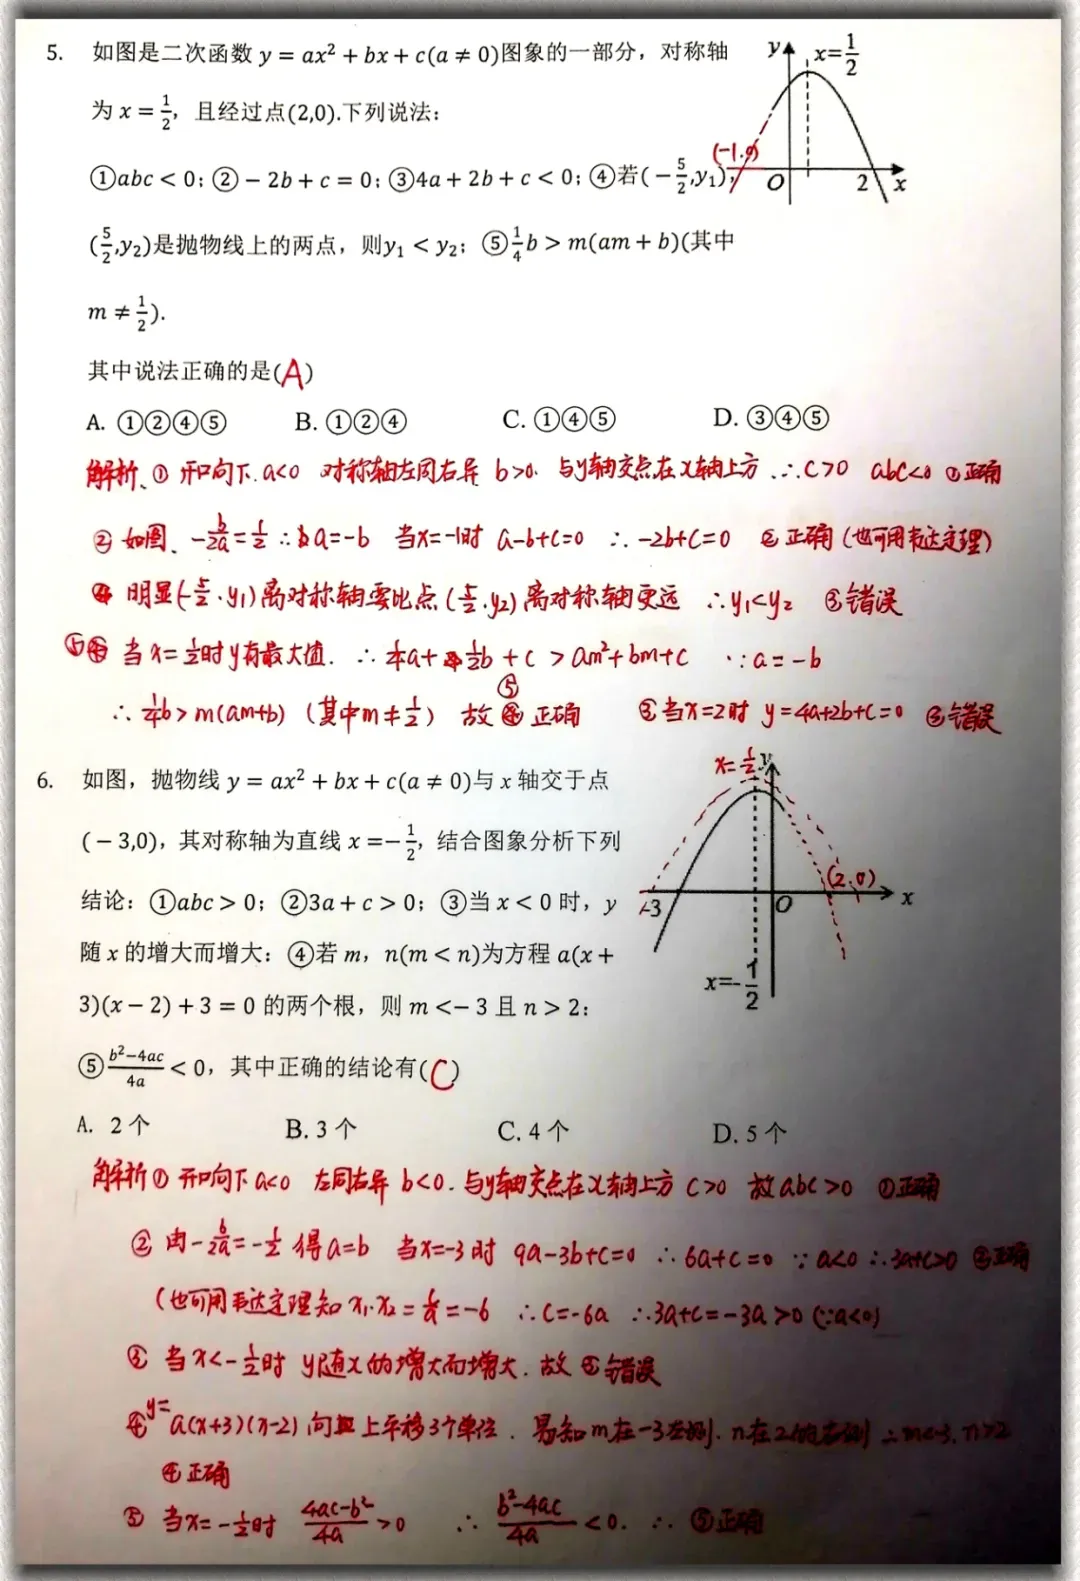 5. 如图是二次函数 y = ax² + bx + c(a ≠ 0)图象的一部分，对称轴
为 x = 1/2，且经过点(2,0).下列说法：
①abc < 0；②－2b + c = 0；③4a + 2b + c < 0；④若(－5/2,y₁)，
(5/2,y₂)是抛物线上的两点，则y₁ < y₂；⑤1/4b > m(am + b)(其中
m ≠ 1/2).
其中说法正确的是(A)
A. ①②④⑤ B. ①②④ C. ①④⑤ D. ③④⑤
y
x=1/2
(-1.0)
O
2
x
解析、① 开口向下.a<0 对称轴左同右异 b>0. 与y轴交点在x轴上方.∴C>0 abc<0 ①正确
② 如图、-b/2a=1/2 ∴a=-b 当x=-1时 a-b+c=0 ∴-2b+c=0 ②正确(也可用韦达定理)
④ 明显(-5/2.y₁)离对称轴要比点(5/2.y₂)离对称轴更远 ∴y₁<y₂ ③错误
⑤ 当x=1/2时y有最大值.∴1/4a+1/2b+c>am²+bm+c ∵a=-b
∴1/4b>m(am+b)(其中m≠1/2) 故⑤正确 ③当x=2时 y=4a+2b+c=0 ③错误
6. 如图，抛物线 y = ax² + bx + c(a ≠ 0)与 x 轴交于点
(－3,0)，其对称轴为直线 x =－1/2，结合图象分析下列
结论：①abc > 0；②3a + c > 0；③当 x < 0 时，y
随 x 的增大而增大：④若 m，n(m < n)为方程 a(x +
3)(x － 2) + 3 = 0 的两个根，则 m <－ 3 且 n > 2；
⑤b²－4ac/4a < 0，其中正确的结论有(C)
A. 2 个 B. 3 个 C. 4 个 D. 5 个
x=-1/2
y
(2.0)
-3
O
x
x=-1/2
解析① 开口向下a<0 左同右异 b<0.与y轴交点在x轴上方 c>0 故abc>0 ①正确
② 由-b/2a=-1/2 得a=b 当x=-3时 9a-3b+c=0 ∴6a+c=0 ∵a<0∴3a+c>0 ②正确
(也可用韦达定理知x₁.x₂=c/a=-6 ∴c=-6a ∴3a+c=-3a>0(∵a<0)
③ 当x<-1/2时 y随x的增大而增大.故③错误
④y=a(x+3)(x-2)向上平移3个单位.易知m在-3左侧.n在2的右侧∴m<-3.n>2
④正确
⑤ 当x=-1/2时 4ac-b²/4a>0 ∴b²-4ac/4a<0. ∴⑤正确